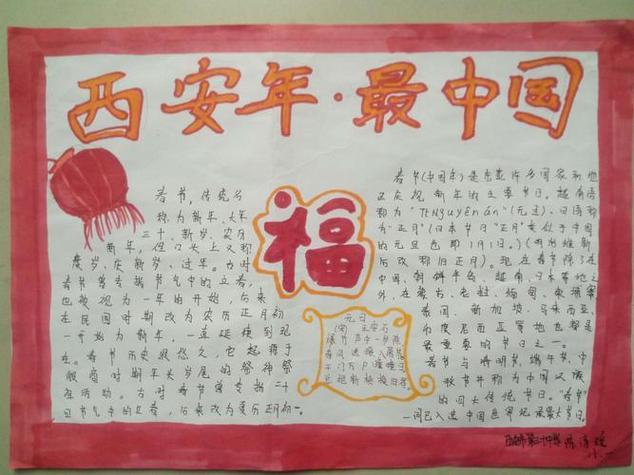 西安年·最中国
春节，传统名
称为新年、大年
三十、新岁，农历
新年，但口头上又称
度岁、庆新岁、过年。古时
春节曾专指节气中的立春，
也被视为一年的开始，后来
在民国时期改为农历正月初
一开始为新年，一直延续到现
在。春节历史很悠久，它起源于
殷商时期年头岁尾的祭神祭
祖活动。古时春节曾专指二十
四节气中的立春，后来改为夏历正月初一。
福
元日
(宋) 王安石
爆竹声中一岁除
春风送暖入屠苏
千门万户曈曈日
总把新桃换旧符
春节(中国年)是东亚许多国家和地
区庆祝新年的主要节日。越南语
称为"TếtNguyênán"(元旦)，日语称
为"正月"(日本节日"正月"类似于中国
的元旦也即1月1日。)(明治维新
后改称旧正月)。现在春节除了在
中国、朝鲜半岛、越南、日本等地之
外，在蒙古、老挝、缅甸、柬埔寨
泰国、新加坡、马来西亚、
印度尼西亚等地也都是
最重要的节日之一。
春节与清明节、端午节、中
秋节并称为中国汉族
的四大传统节日。"春节"
一词已入选中国世界纪录最大节日。